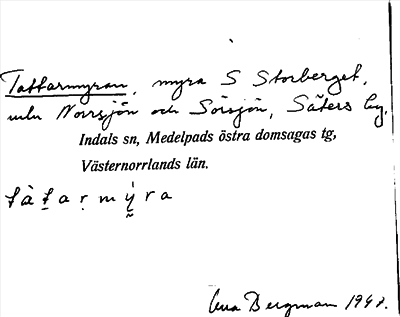 Tattarmyran, myra S Storberget,
mln Norrsjön och Sörsjön, Säters by,
Indals sn, Medelpads östra domsagas tg,
Västernorrlands län.
Bergman